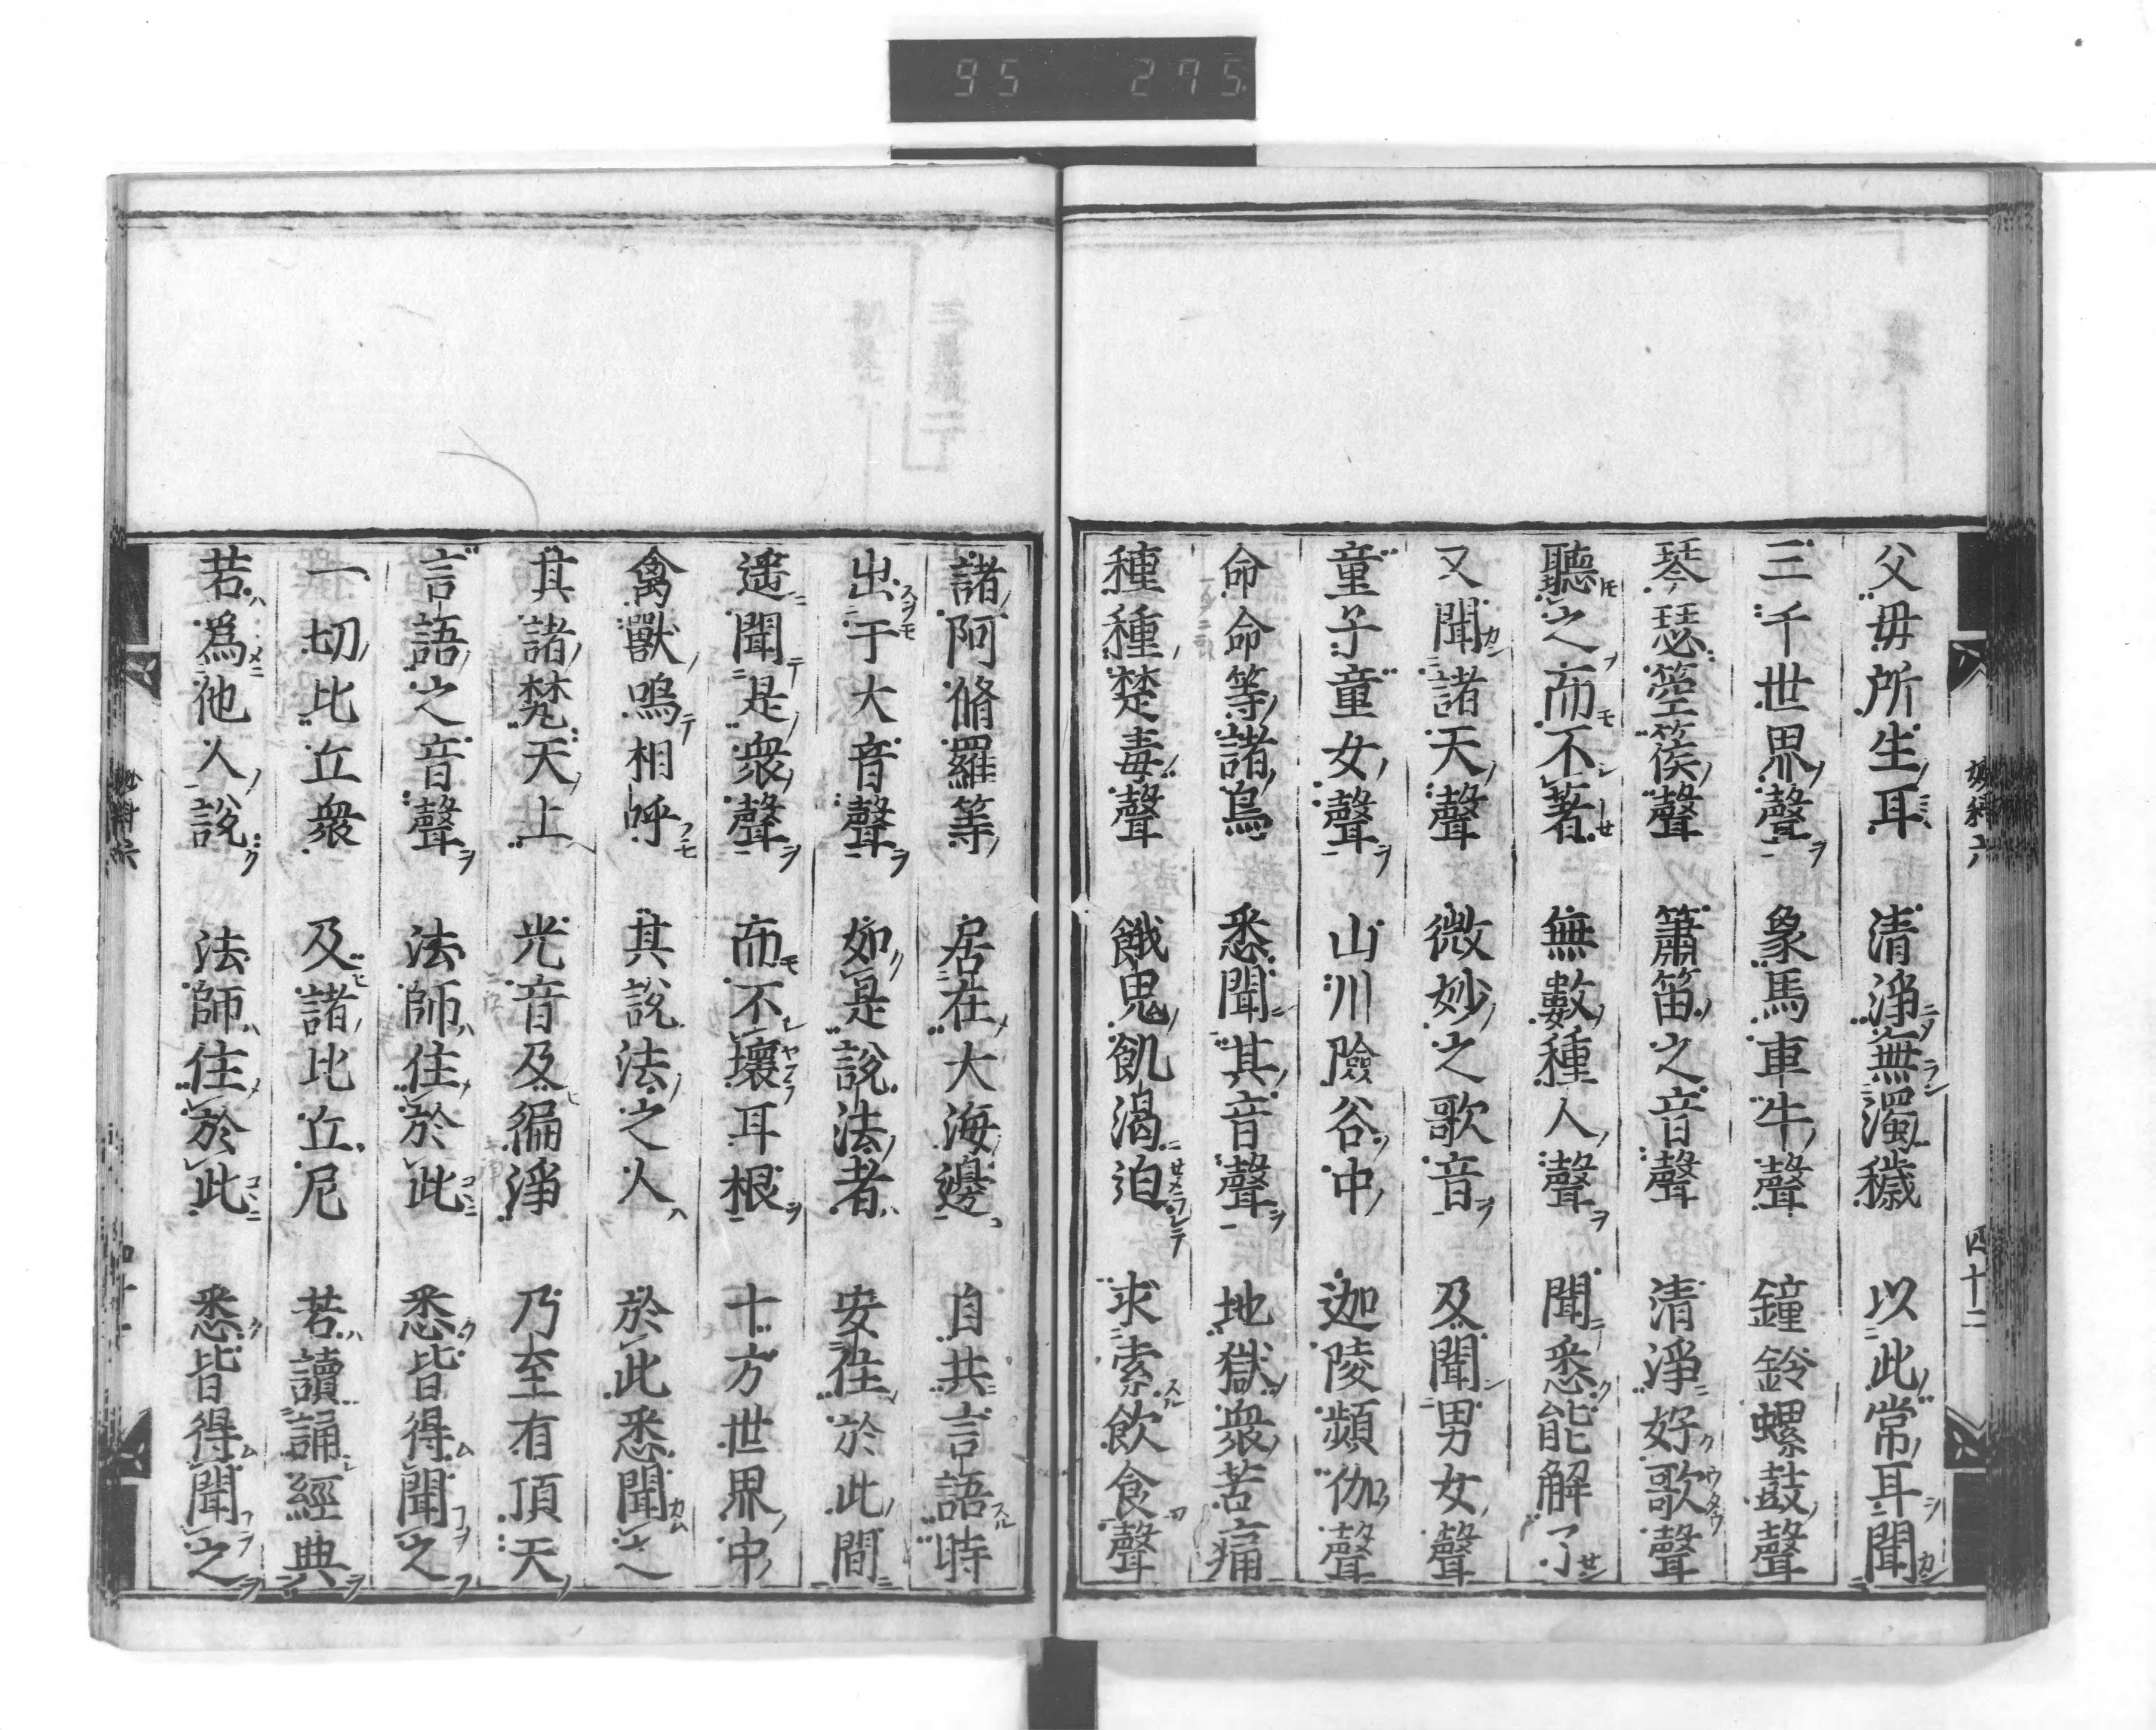 95 275
父毋所生耳 清淨無濁穢 以此常耳聞
三千世界聲 象馬車牛聲 鐘鈴螺鼓聲
琴瑟箜篌聲 簫笛之音聲 清淨好歌聲
聽之而不著 無數種人聲 聞悉能解了
又聞諸天聲 微妙之歌音 及聞男女聲
童子童女聲 山川險谷中 迦陵頻伽聲
命命等諸鳥 悉聞其音聲 地獄衆苦痛
種種楚毒聲 餓鬼飢渴迫 求索飲食聲
四十二
諸阿脩羅等 居在大海邊 自共言語時
出于大音聲 如是說法者 安住於此間
遙聞是衆聲 而不壞耳根 十方世界中
禽獸鳴相呼 其說法之人 於此悉聞之
其諸梵天上 光音及徧淨 乃至有頂天
言語之音聲 法師住於此 悉皆得聞之
一切比丘衆 及諸比丘尼 若讀誦經典
若爲他人說 法師住於此 悉皆得聞之